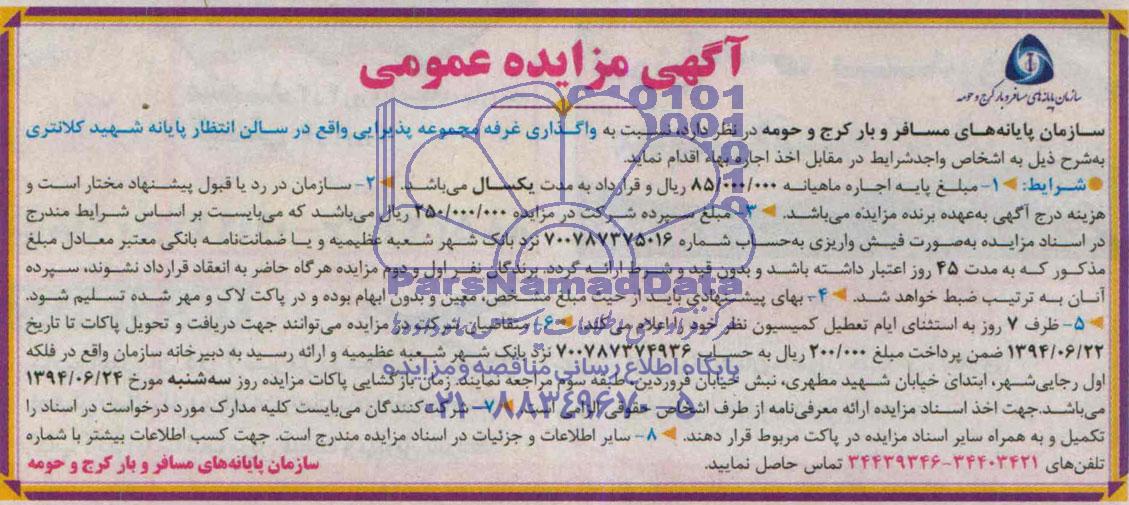 آگهی مزایده عمومی
سازمان پایانه‌های مسافر و بار کرج و حومه
سازمان پایانه‌های مسافر و بار کرج و حومه در نظر دارد، نسبت به واگذاری غرفه مجموعه پذیرایی واقع در سالن انتظار پایانه شهید کلانتری
به‌شرح ذیل به اشخاص واجدشرایط در مقابل اخذ اجاره بهاء اقدام نماید.
شرایط: ۱- مبلغ پایه اجاره ماهیانه ۸۵/۰۰۰/۰۰۰ ریال و قرارداد به مدت یکسال می‌باشد. ۲- سازمان در رد یا قبول پیشنهاد مختار است و
هزینه درج آگهی به‌عهده برنده مزایده می‌باشد. ۳- مبلغ سپرده شرکت در مزایده ۲۵۰/۰۰۰/۰۰۰ ریال می‌باشد که می‌بایست بر اساس شرایط مندرج
در اسناد مزایده به‌صورت فیش واریزی به‌حساب شماره ۷۰۰۷۸۷۳۷۵۰۱۶ نزد بانک شهر شعبه عظیمیه و یا ضمانت‌نامه بانکی معتبر معادل مبلغ
مذکور که به مدت ۴۵ روز اعتبار داشته باشد و بدون قید و شرط ارائه گردد. برندگان نفر اول و دوم مزایده هرگاه حاضر به انعقاد قرارداد نشوند، سپرده
آنان به ترتیب ضبط خواهد شد. ۴- بهای پیشنهادی باید از حیث مبلغ مشخص، معین و بدون ابهام بوده و در پاکت لاک و مهر شده تسلیم شود.
۵- ظرف ۷ روز به استثنای ایام تعطیل کمیسیون نظر خود را اعلام می‌کند. ۶- متقاضیان شرکت در مزایده می‌توانند جهت دریافت و تحویل پاکات تا تاریخ
۱۳۹۴/۰۶/۲۲ ضمن پرداخت مبلغ ۲۰۰/۰۰۰ ریال به حساب ۷۰۰۷۸۷۳۷۴۹۳۶ نزد بانک شهر شعبه عظیمیه و ارائه رسید به دبیرخانه سازمان واقع در فلکه
اول رجایی‌شهر، ابتدای خیابان شهید مطهری، نبش خیابان فروردین، طبقه سوم مراجعه نمایند. زمان بازگشایی پاکات مزایده روز سه‌شنبه مورخ ۱۳۹۴/۰۶/۲۴
می‌باشد.جهت اخذ اسناد مزایده ارائه معرفی‌نامه از طرف اشخاص حقوقی الزامی است. ۷- شرکت‌کنندگان می‌بایست کلیه مدارک مورد درخواست در اسناد را
تکمیل و به همراه سایر اسناد مزایده در پاکت مربوط قرار دهند. ۸- سایر اطلاعات و جزئیات در اسناد مزایده مندرج است. جهت کسب اطلاعات بیشتر با شماره
تلفن‌های ۳۴۴۰۳۴۲۱-۳۴۴۳۹۳۴۶ تماس حاصل نمایید.
سازمان پایانه‌های مسافر و بار کرج و حومه
ParsNamadData
پایگاه اطلاع رسانی مناقصه و مزایده
۰۲۱-۸۸۳۴۹۶۷۰-۵